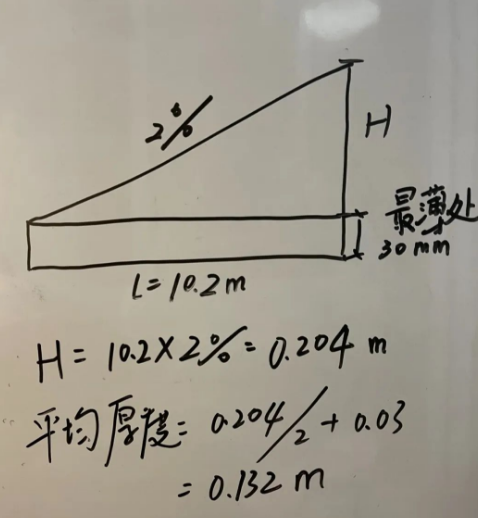 2%
H
最薄处
30mm
L=10.2m
H=10.2×2%=0.204m
平均厚度=0.204/2+0.03
=0.132m